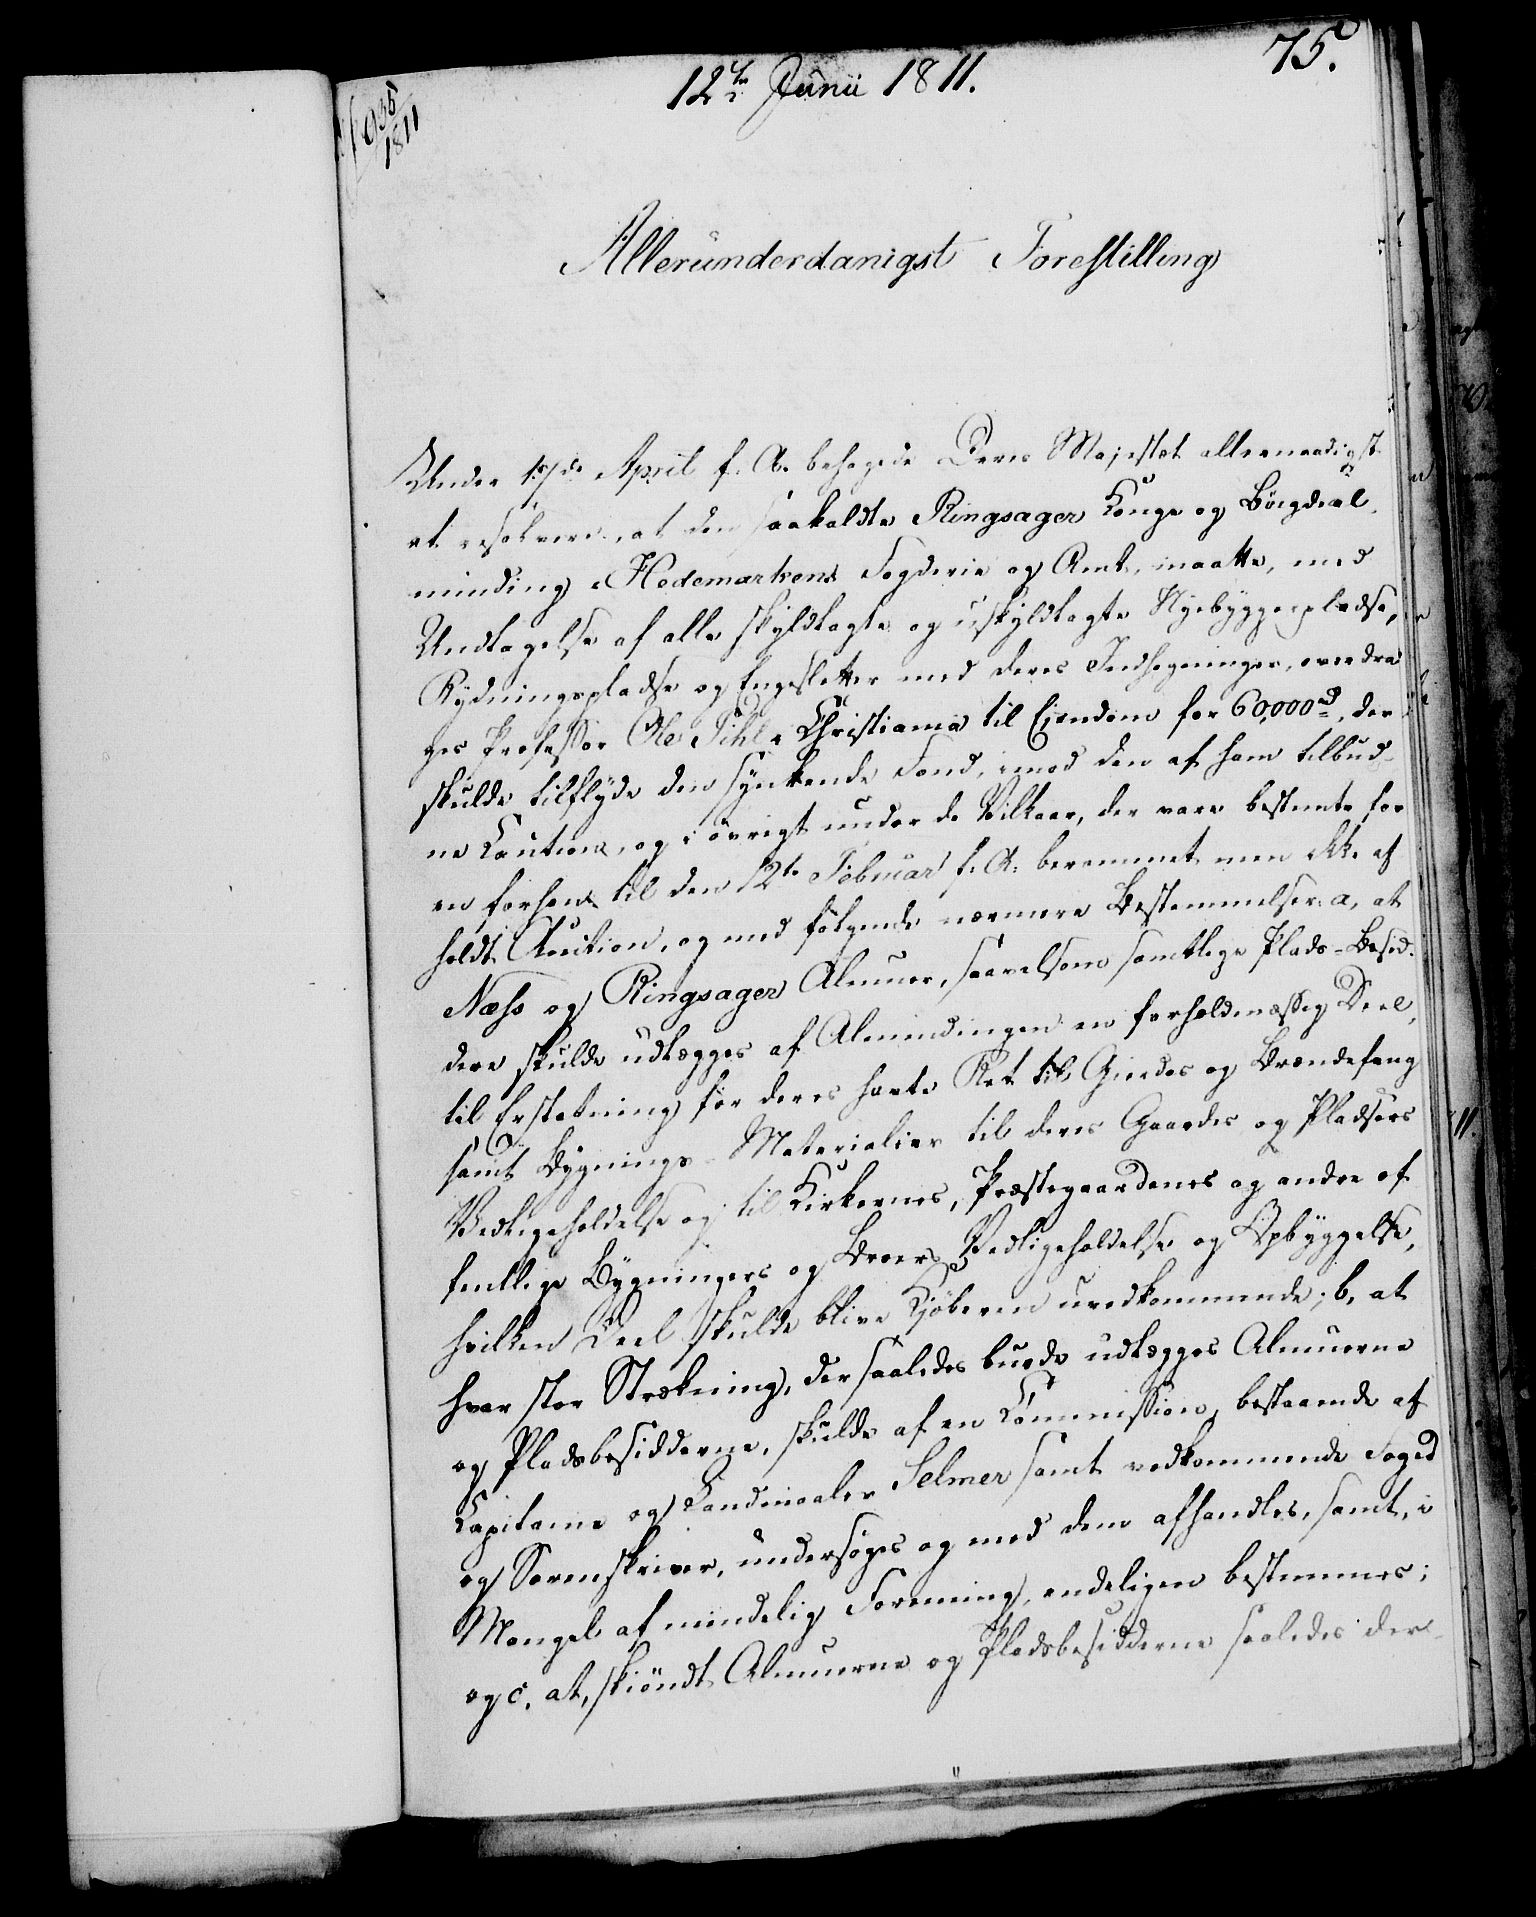 75.
12te Junii 1811.
935
1811
Allerunderdanigst Forestilling
Under 17de April f. A. behagede Deres Majestet allernaadigst
at resolvere, at den saakaldte Ringsager Konge og Bøigdeal
minding i Hedemarkens Fogderie og Amt, maatte, med
Undtagelse af alle skyldlagte og uskyldlagte Nyebyggerpladse,
Rydningspladse og Engesletter med deres Indhegninger, overdra
ges Professor Ole Pihl i Christiania til Eiendom for 60,000rd, der
skulde tilflyde den synkende Fond, imod den af ham tilbud-
ne Caution, og i øvrigt under de Vilkaar, der vare bestemte for
en forhen til den 12te Februar f. A. berammet men ikke af
holdt Auction, og med følgende nærmere Bestemmelser: a, at
Næss og Ringsager Almuer, saavelsom samtlige Plads-Besid-
dere skulde udlægges af Almindingen en forholdmæssig Deel,
til Erstatning for deres havte Ret til Gierdes og Brændefang
samt Bygnings-Materialier til deres Gaardes og Pladsers
Vedligeholdelse og til Kirkernes, Præstegaardenes og andre of
fentlige Bygningers og Broers Vedligeholdelse og Opbyggelse,
hvilken Deel skulde blive Kjøberen uvedkommende; b, at
hvor stor Strækning, der saaledes burde udlægges Almuerne
og Pladsbesidderne, skulde af en Commission, bestaaende af
Capitaine og Landmaaler Selmer samt vedkommende Foged
og Sorenskriver, undersøges og med dem afhandles, samt, i
Mangel af mindelig Forening, endeligen bestemmes;
og c. at, skiøndt Almuerne og Pladsbesidderne saaledes der-